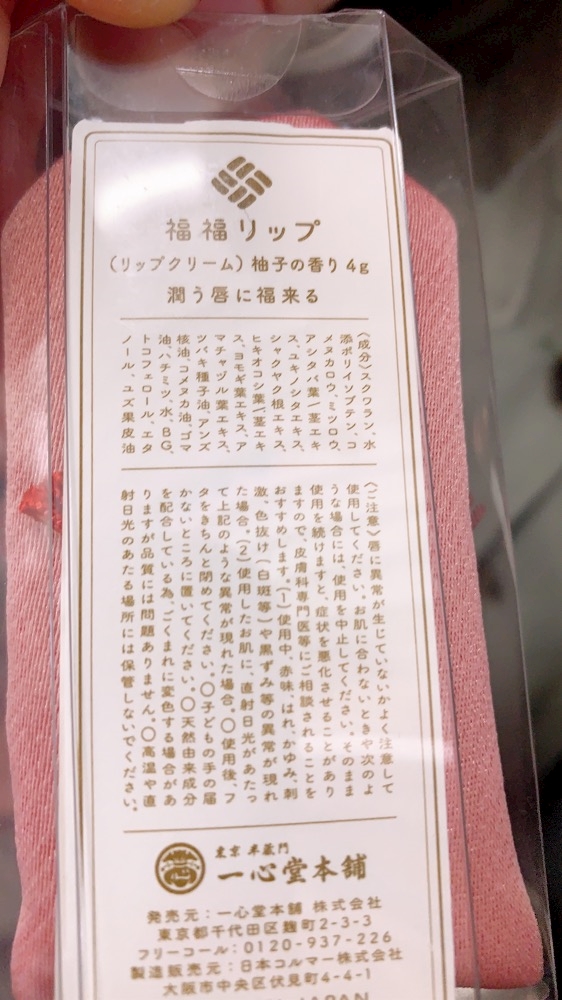 福福リップ
(リップクリーム) 柚子の香り 4g
潤う唇に福来る
〈成分〉スクワラン、水
添ポリイソブテン、コ
メヌカロウ、ミツロウ、
アシタバ葉/茎エキ
ス、ユキノシタエキス、
シャクヤク根エキス、
ヒキオコシ葉/茎エキ
ス、ヨモギ葉エキス、ア
マチャヅル葉エキス、
ツバキ種子油、アンズ
核油、コメヌカ油、ゴマ
油、ハチミツ、水、BG、
トコフェロール、エタ
ノール、ユズ果皮油
〈ご注意〉唇に異常が生じていないかよく注意して
使用してください。お肌に合わないときや次のよ
うな場合には、使用を中止してください。そのまま
使用を続けますと、症状を悪化させることがあり
ますので、皮膚科専門医等にご相談されることを
おすすめします。(1)使用中、赤味、はれ、かゆみ、刺
激、色抜け(白斑等)や黒ずみ等の異常が現れ
た場合。(2)使用したお肌に、直射日光があたっ
て上記のような異常が現れた場合。〇使用後、フ
タをきちんと閉めてください。〇子どもの手の届
かないところに置いてください。〇天然由来成分
を配合している為、ごくまれに変色する場合があ
りますが品質には問題ありません。〇高温や直
射日光のあたる場所には保管しないでください。
東京 半蔵門
一心堂本舗
発売元:一心堂本舗 株式会社
東京都千代田区麹町2-3-3
フリーコール:0120-937-226
製造販売元:日本コルマー株式会社
大阪市中央区伏見町4-4-1
JAPAN